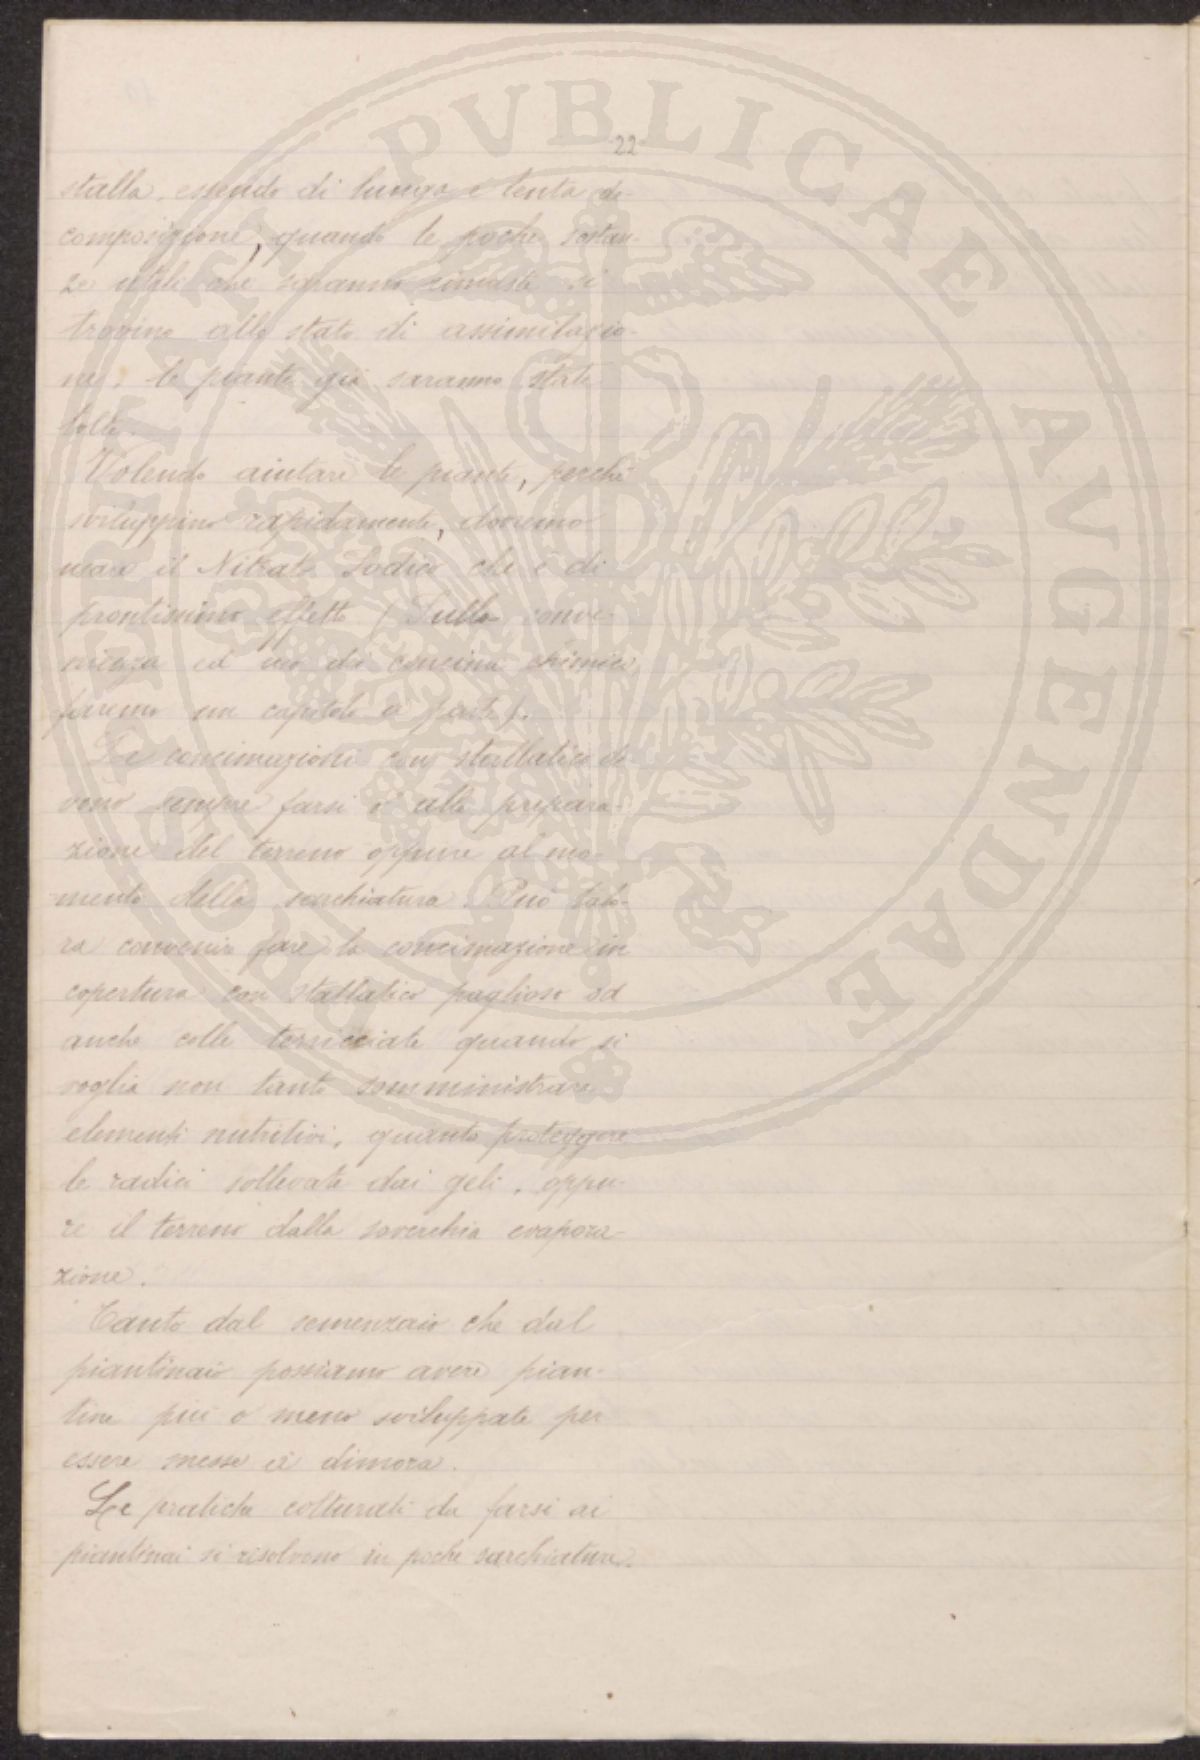 22
stalla, essendo di lunga e lenta de-
composizione, quando le poche sostan-
ze utili che saranno rimaste si
trovino allo stato di assimilazio-
ne, le piante già saranno state
tolte.
Volendo aiutare le piante, perchè
sviluppino rapidamente, dovremo
usare il Nitrato Sodico che è di
prontissimo effetto (Sulla conve-
nienza ed uso dei concimi chimici
faremo un capitolo a parte).
Le concimazioni con stallatico de-
vono sempre farsi o alla prepara-
zione del terreno oppure al mo-
mento della sarchiatura. Può talo-
ra convenire fare la concimazione in
copertura con stallatico paglioso od
anche colle terricciate quando si
voglia non tanto somministrare
elementi nutritivi, quanto proteggere
le radici sollevate dai geli, oppu-
re il terreno dalla soverchia evapora-
zione.
Tanto dal semenzaio che dal
piantinaio possiamo avere pian-
tine più o meno sviluppate per
essere messe a dimora.
Le pratiche colturali da farsi ai
piantinai si risolvono in poche sarchiature.
POSTERITATI PVBLICAE AVGENDAE